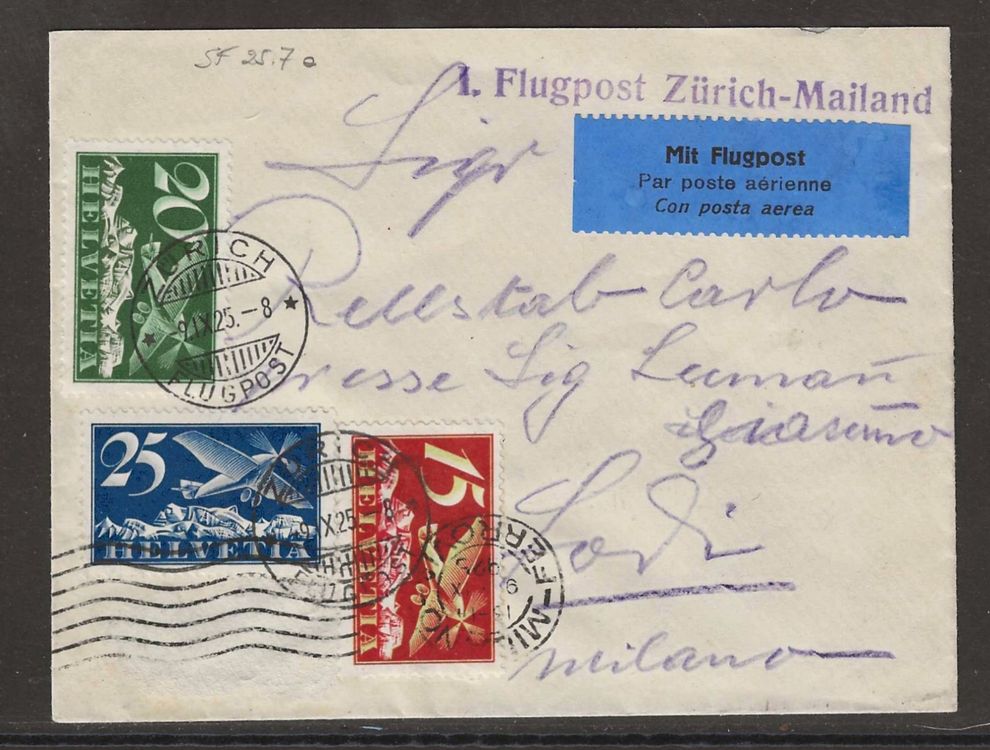 SF 25.7 a
1. Flugpost Zürich-Mailand
Mit Flugpost
Par poste aérienne
Con posta aerea
Sigr
Rellstab Carlo
presse Sig Lumañ
Lodi
milano
20
HELVETIA
ZÜRICH
9.IX.25.-8
FLUGPOST
25
HELVETIA
15
HELVETIA
9.IX.25.-8
FERROVIA